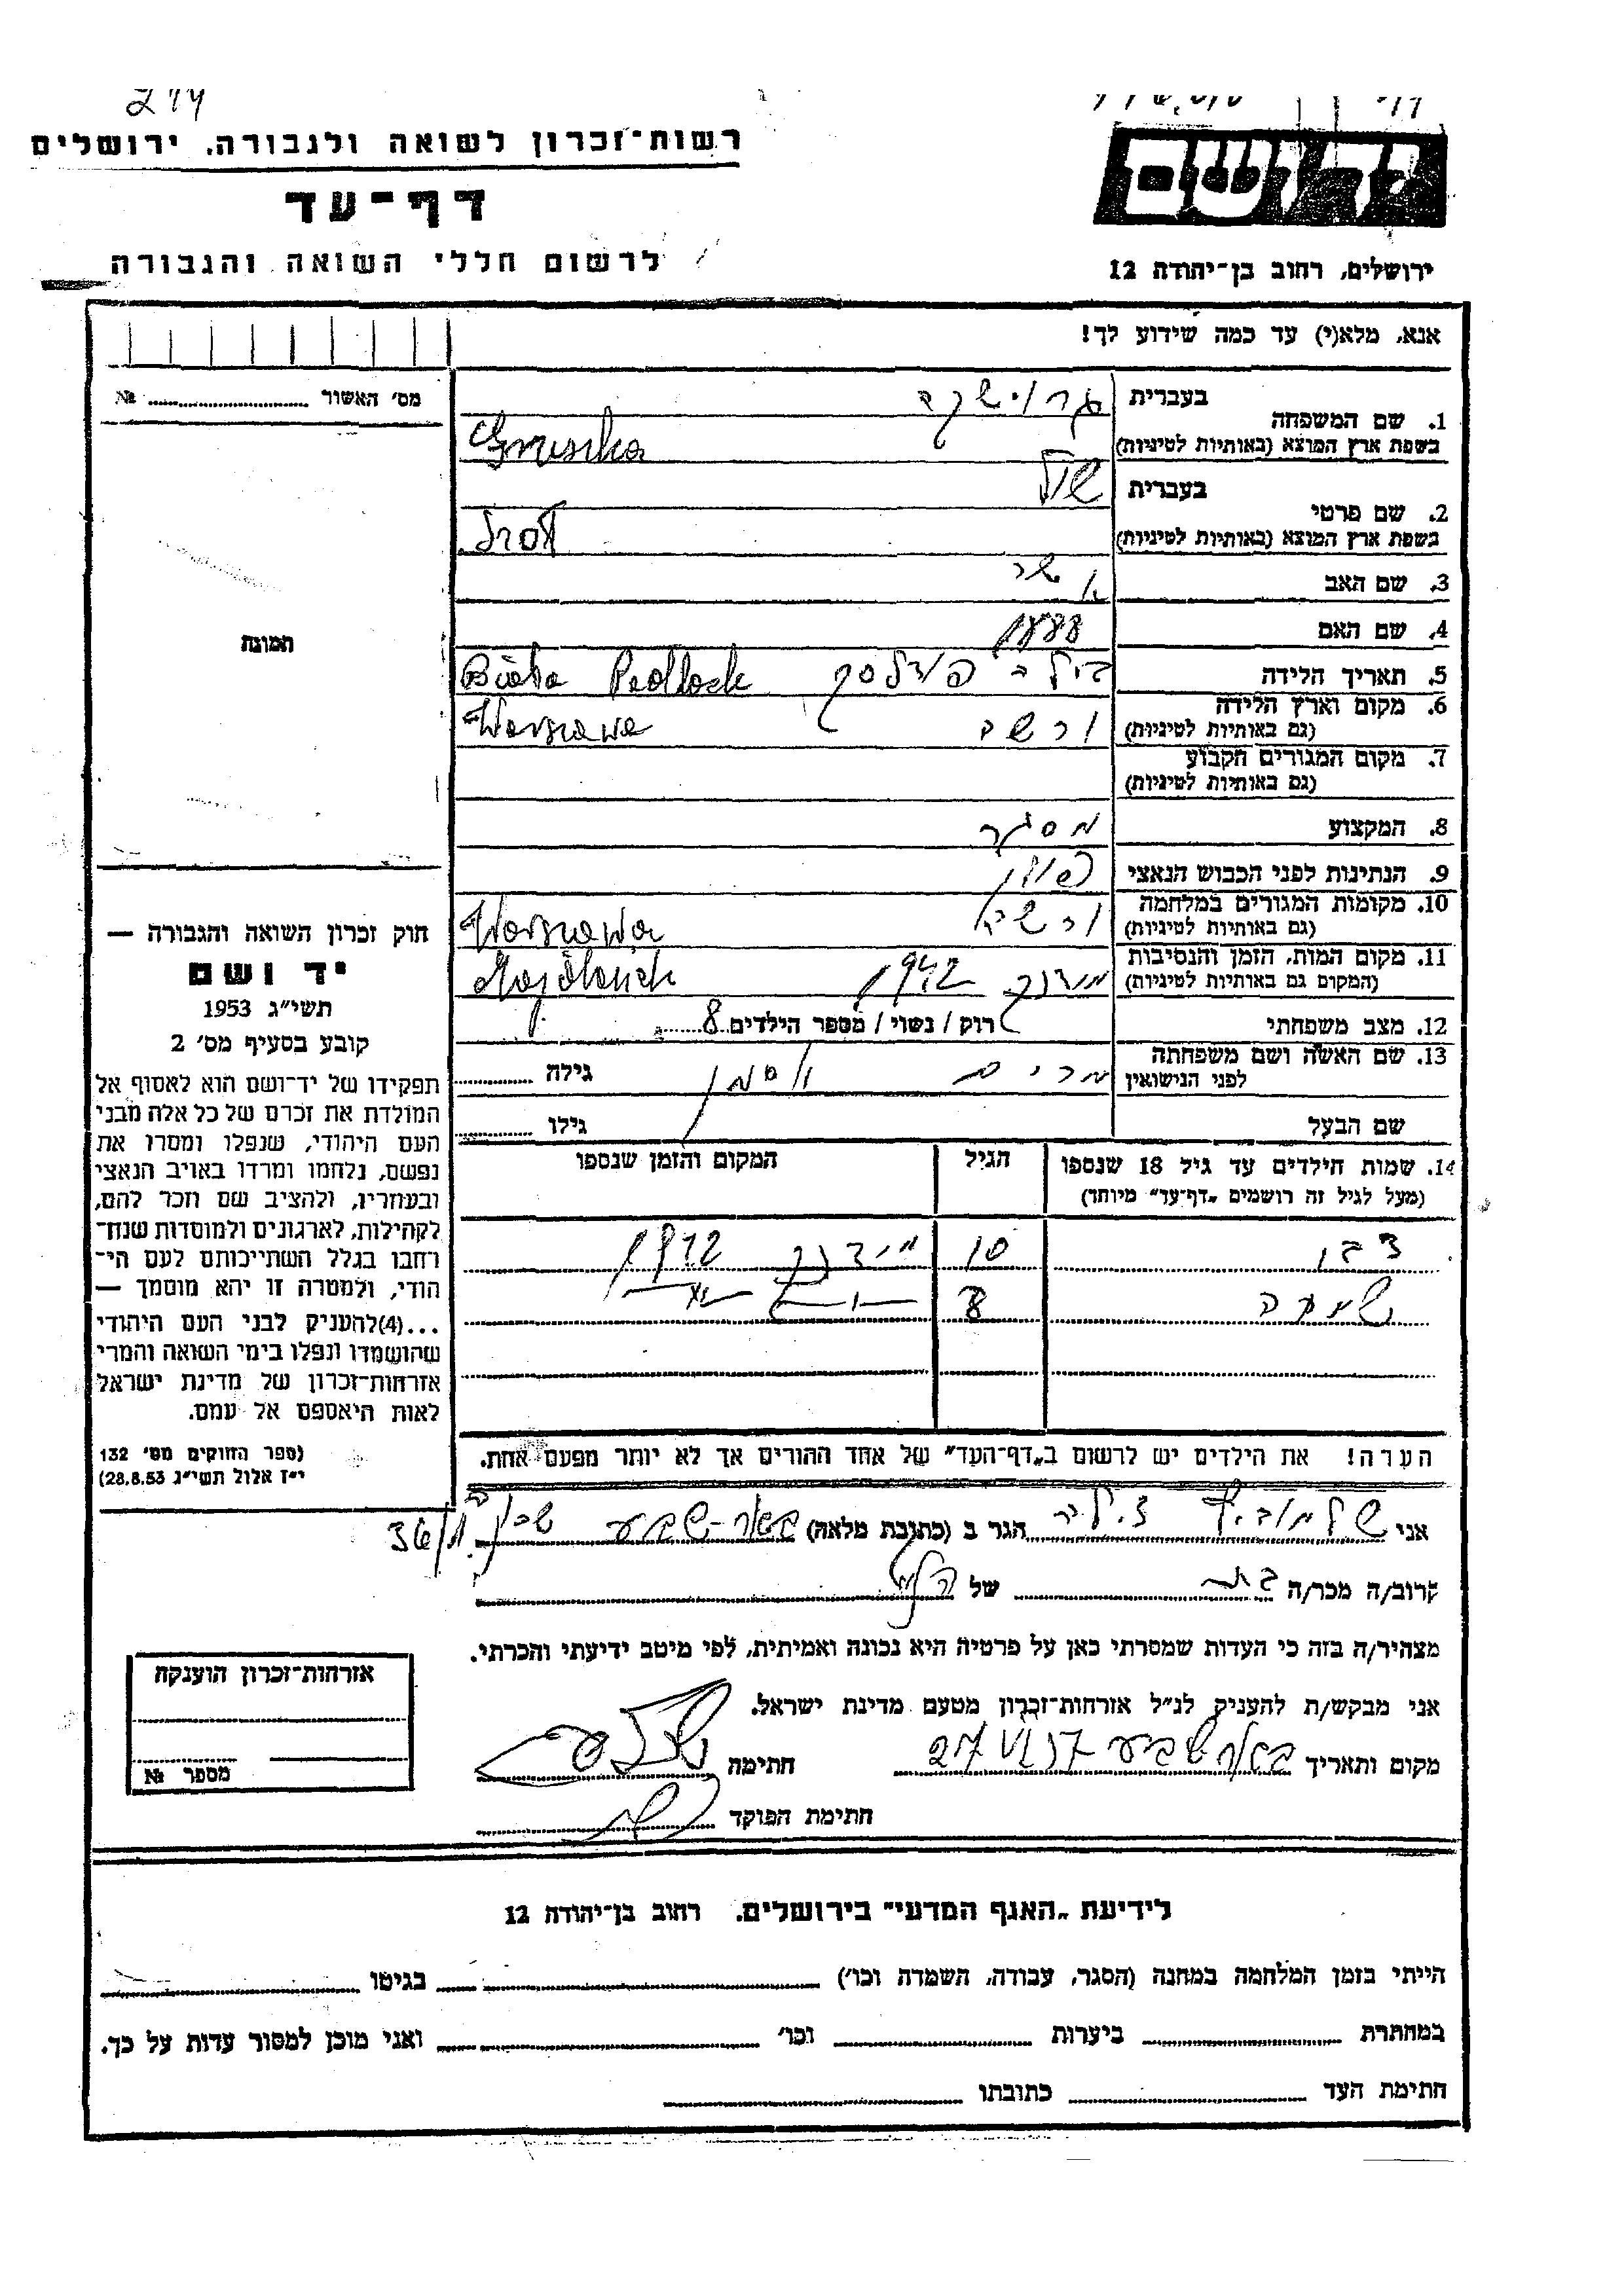 244
רשות-זכרון לשואה ולגבורה. ירושלים
דף-עד
לרשום חללי השואה והגבורה
ידושם
ירושלים, רחוב בן-יהודה 12
אנא, מלא(י) עד כמה שידוע לך!
מס׳ האשור ........ №
תמונה
1. שם המשפחה
בעברית גרוישקה
בשפת ארץ המוצא (באותיות לטיניות) Gruszka
2. שם פרטי
בעברית שאול
בשפת ארץ המוצא (באותיות לטיניות)
3. שם האב אשר
4. שם האם
1888
5. תאריך הלידה
Biała Podlask
6. מקום וארץ הלידה
(גם באותיות לטיניות) ורשה Warszawa
7. מקום המגורים הקבוע
(גם באותיות לטיניות)
8. המקצוע מסגר
9. הנתינות לפני הכבוש הנאצי פולין
10. מקומות המגורים במלחמה
(גם באותיות לטיניות) ורשה Warszawa
11. מקום המות, הזמן והנסיבות
(המקום גם באותיות לטיניות) מידנק 1942 Majdanek
12. מצב משפחתי רוק / נשוי / מספר הילדים 8
13. שם האשה ושם משפחתה
לפני הנישואין מרים וסמן גילה
שם הבעל גילו
14. שמות הילדים עד גיל 18 שנספו
(מעל לגיל זה רושמים „דף-עד” מיוחד)
הגיל
המקום והזמן שנספו
10 מידנק 1942
8
הערה! את הילדים יש לרשום ב„דף-העד” של אחד ההורים אך לא יותר מפעם אחת.
חוק זכרון השואה והגבורה —
יד ושם
תשי״ג 1953
קובע בסעיף מס׳ 2
תפקידו של יד-ושם הוא לאסוף אל
המולדת את זכרם של כל אלה מבני
העם היהודי, שנפלו ומסרו את
נפשם, נלחמו ומרדו באויב הנאצי
ובעוזריו, ולהציב שם וזכר להם,
לקהילות, לארגונים ולמוסדות שנח-
רחבו בגלל השתייכותם לעם הי-
הודי, ולמטרה זו יהא מוסמך —
...(4)להעניק לבני העם היהודי
שהושמדו ונפלו בימי השואה והמרי
אזרחות-זכרון של מדינת ישראל
לאות היאספם אל עמם.
(ספר החוקים מס׳ 132
י״ז אלול תשי״ג 28.8.53)
אני הגר ב (כתובת מלאה) באר-שבע שכון 36/
קרוב/ה מכר/ה בת של הנ״ל
מצהיר/ה בזה כי העדות שמסרתי כאן על פרטיה היא נכונה ואמיתית, לפי מיטב ידיעתי והכרתי.
אני מבקש/ת להעניק לנ״ל אזרחות-זכרון מטעם מדינת ישראל.
מקום ותאריך באר שבע 27/VI 57 חתימה
חתימת הפוקד
אזרחות-זכרון הוענקה
מספר №
לידיעת „האגף המדעי” בירושלים. רחוב בן-יהודה 12
הייתי בזמן המלחמה במחנה (הסגר, עבודה, השמדה וכו׳) בגיטו
במחתרת ביערות וכו׳ ואני מוכן למסור עדות על כך.
חתימת העד כתובתו